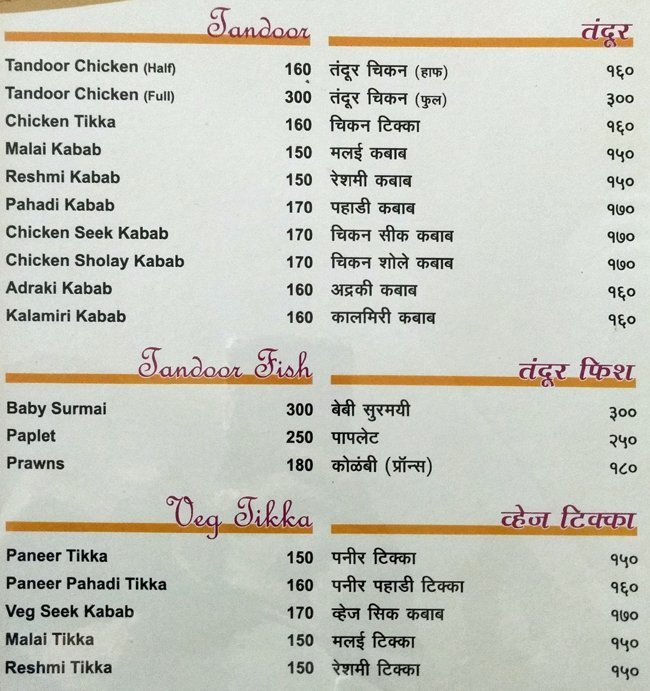 Tandoor तंदूर
Tandoor Chicken (Half) 160 तंदूर चिकन (हाफ) १६०
Tandoor Chicken (Full) 300 तंदूर चिकन (फुल) ३००
Chicken Tikka 160 चिकन टिक्का १६०
Malai Kabab 150 मलई कबाब १५०
Reshmi Kabab 150 रेशमी कबाब १५०
Pahadi Kabab 170 पहाडी कबाब १७०
Chicken Seek Kabab 170 चिकन सीक कबाब १७०
Chicken Sholay Kabab 170 चिकन शोले कबाब १७०
Adraki Kabab 160 अद्रकी कबाब १६०
Kalamiri Kabab 160 कालमिरी कबाब १६०
Tandoor Fish तंदूर फिश
Baby Surmai 300 बेबी सुरमयी ३००
Paplet 250 पापलेट २५०
Prawns 180 कोळंबी (प्रॉन्स) १८०
Veg Tikka व्हेज टिक्का
Paneer Tikka 150 पनीर टिक्का १५०
Paneer Pahadi Tikka 160 पनीर पहाडी टिक्का १६०
Veg Seek Kabab 170 व्हेज सिक कबाब १७०
Malai Tikka 150 मलई टिक्का १५०
Reshmi Tikka 150 रेशमी टिक्का १५०